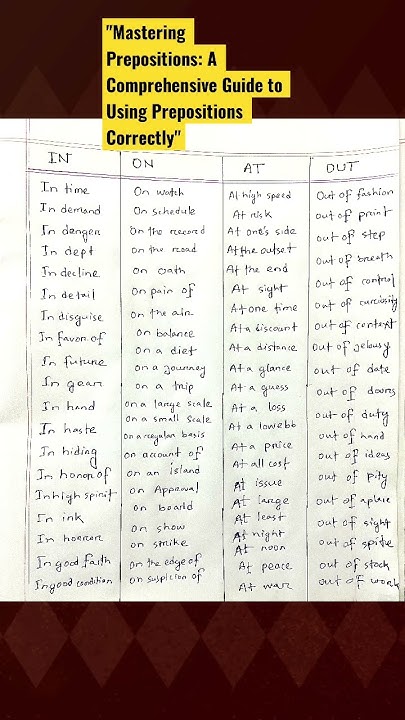 "Mastering
Prepositions: A
Comprehensive Guide to
Using Prepositions
Correctly"
IN
In time
In demand
In danger
In dept
In decline
In detail
In disguise
In favor of
In future
In gear
In hand
In haste
In hiding
In honor of
In high spirit
In ink
In horror
In good faith
In good condition
ON
On watch
On schedule
On the record
On the road
On oath
On pain of
On the air
On balance
on a diet
on a journey
on a trip
on a large scale
on a small scale
on a regular basis
on account of
on an island
on Approval
on board
on show
on strike
on the edge of
on suspicion of
AT
At high speed
At risk
At one's side
At the outset
At the end
At sight
At one time
At a discount
At a distance
At a glance
At a guess
At a loss
At a lowebb
At a price
At all cost
At issue
At large
At least
At night
At noon
At peace
At war
OUT
Out of fashion
out of print
out of step
out of breath
out of control
out of curiosity
out of context
out of jelousy
out of date
out of doors
out of duty
out of hand
out of ideas
out of pity
out of
out of sight
out of spite
out of stock
out of work